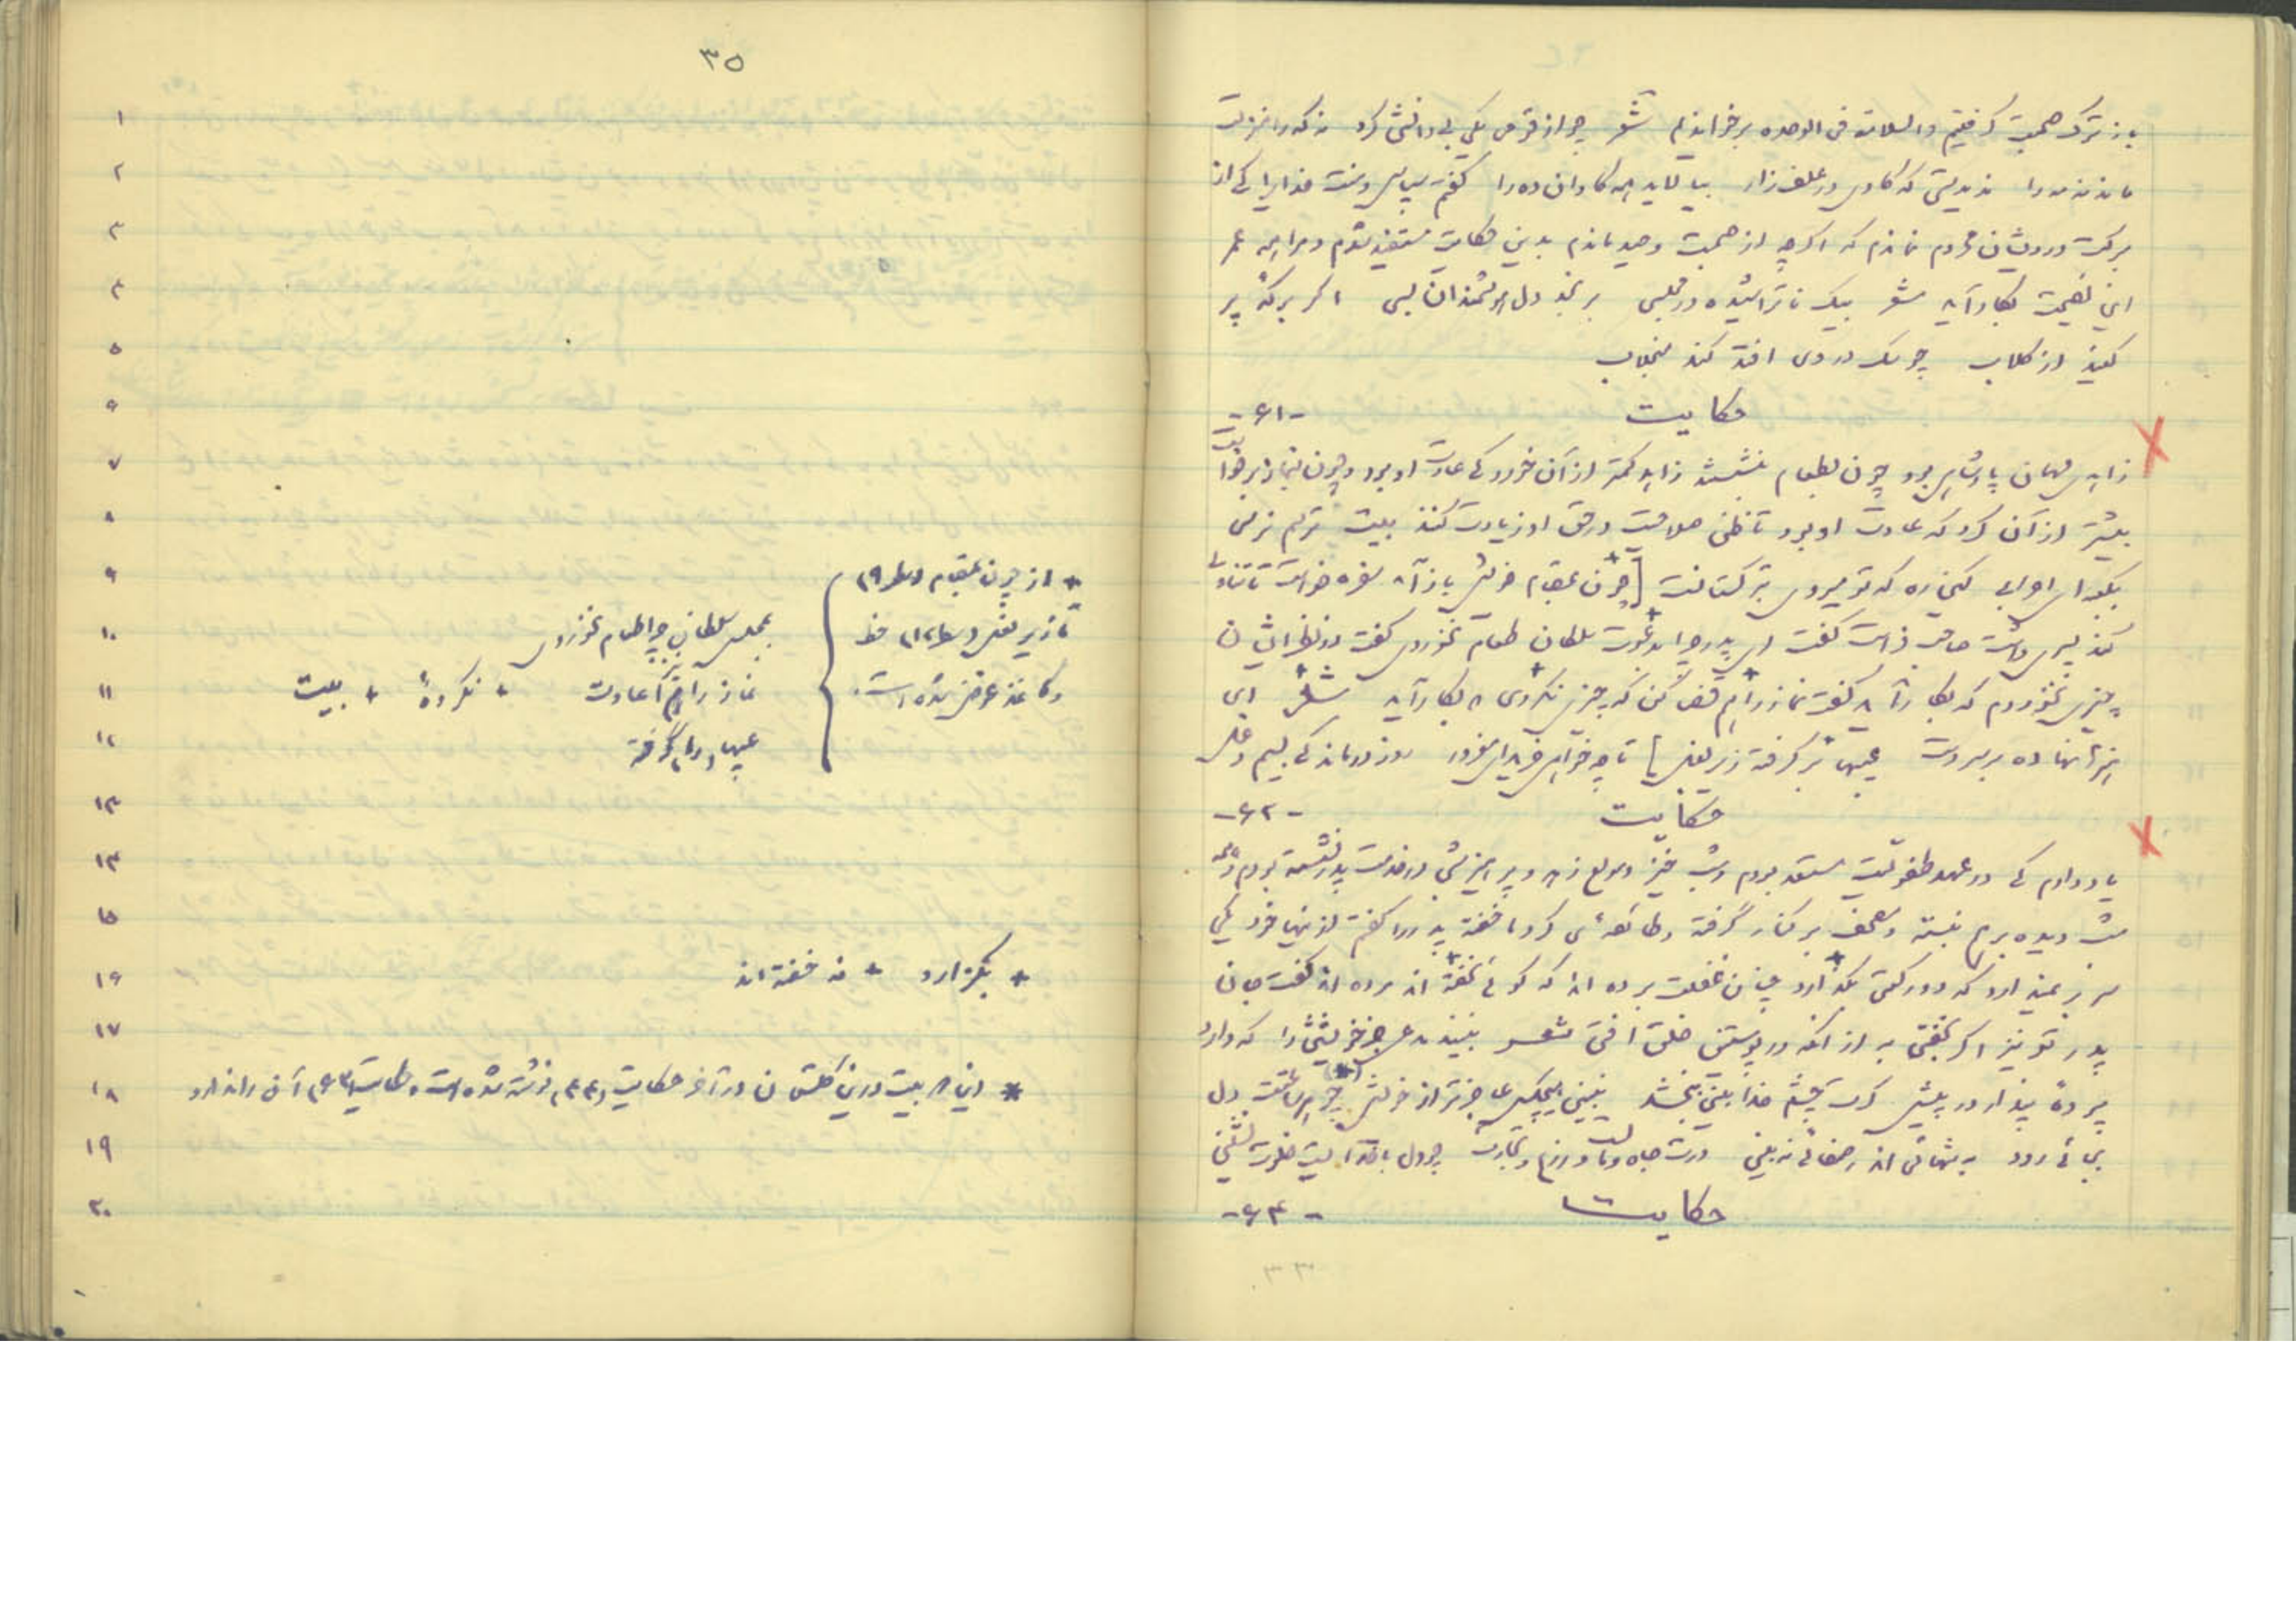 باز ترک صحبت گرفتیم والسلامة فی الوحده برخواندیم شعر چو از قومی یکی بی دانشی کرد نه که را منزلت
ماند نه مه را ندیدستی که گاوی در علف زار بیالاید همه گاوان ده را گفتم سپاس و منت خدایرا کی از
برکت درویشان محروم نماندم که اگرچه از صحبت وحید ماندم بدین حکایت مستفید شدم و مرا همه عمر
این نصیحت بکار آید شعر بیک ناتراشیده در مجلسی برنجد دل هوشمندان بسی اگر برکهٔ پر
کنند از گلاب چو سگ در وی افتد کند منجلاب
حکایت -۶۱-
زاهدی مهمان پادشاهی بود چون بطعام بنشستند زاهد کمتر از آن خورد کی عادت او بود و چون بنماز برخواست
بیشتر از آن کرد که عادت او بود تا ظن صلاحیت در حق او زیادت کنند بیت ترسم نرسی
بکعبه ای اعرابی کین ره که تو میروی بترکستانست [چون بمقام خویش باز آمد سفره خواست تا تناولی
کند پسری داشت صاحب فراست گفت ای پدر چرا بدعوت سلطان طعام نخوردی گفت در نظر ایشان
چیزی نخوردم که بکار آید گفت نماز را هم قضا کن که چیزی نکردی که بکار آید شعر ای
هنرها نهاده بر سر دست عیبها بر گرفته زیر بغل] تا چه خواهی خریدای مغرور روز درماندگی بسیم دغل
حکایت -۶۲-
یاد دارم کی در عهد طفولیت متعبد بودم و شب خیز و مولع زهد و پرهیز شبی در خدمت پدر نشسته بودم و همه
شب دیده برهم نبسته و مصحف بر کنار گرفته و طائفه‌ای گرد ما خفته پدر را گفتم از اینها خود یکی
سر بر نمیدارد که دو رکعتی بگذارد چنان غفلت برده اند که گوئی نخفته اند مرده اند گفت جان
پدر تو نیز اگر بخفتی به از آنکه در پوستین خلق افتی شعر نبیند مدعی جز خویشتن را که دارد
پردهٔ پندار در پیش گرت چشم خدا بینی ببخشد نبینی هیچکس عاجزتر از خویش (*) چو هر ساعت دل
بجائی رود به تنهائی اندر صفائی نه بینی ورت جاه و مالست و زرع و تجارت چو دل با خداست خلوت نشینی
حکایت -۶۳-
۳۵
۱
۲
۳
۴
۵
۶
۷
۸
۹ + از چون بمقام (سطر ۹)
۱۰ تا زیر بغل (سطر ۱۲) خط بمجلس سلطان چرا طعام نخوردی
۱۱ و کاغذ عوض شده است. نماز را هم اعادت + نکردهٔ + بیت
۱۲ عیبها (را) گرفته
۱۳
۱۴
۱۵
۱۶ + بگزارد + نه خفته اند
۱۷
۱۸ * این ۲ بیت درین گلستان در آخر حکایت (۴۴) نوشته شده است و حکایت (۶۳) آن را ندارد
۱۹
۲۰